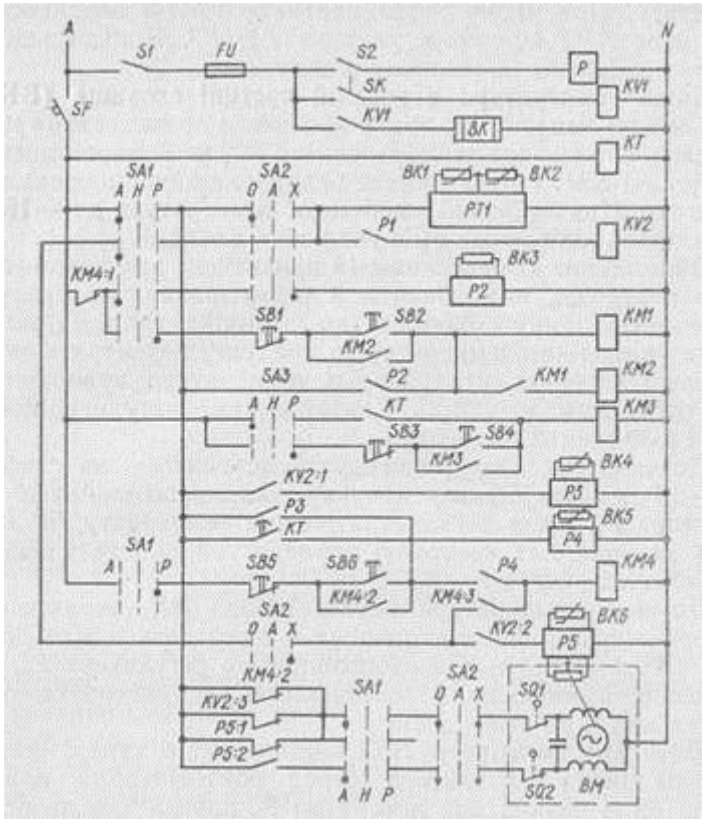 A N
S1 FU S2 P
SF SK KV1
KV1 BK
KT
SA1 SA2 BK1 BK2
A H P O A X PT1
P1 KV2
KM4:1 BK3
P2
SB1 SB2 KM1
KM2
SA3 P2 KM1 KM2
A H P KT KM3
SB3 SB4
KM3
KV2:1 BK4
P3 P3
KT BK5
P4
SA1
A P SB5 SB6 P4 KM4
KM4:2 KM4:3
SA2 BK6
O A X KV2:2 P5
KM4:2
KV2:3 SA1 SA2
P5:1 O A X SQ1
P5:2
A H P SQ2 BM